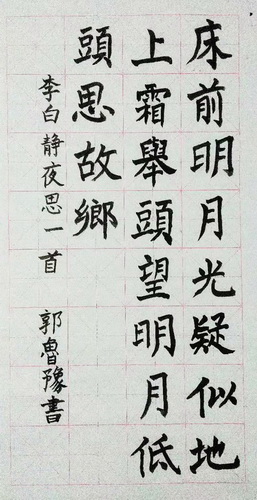 床前明月光疑似地
上霜舉頭望明月低
頭思故鄉
李白静夜思一首 郭魯豫書